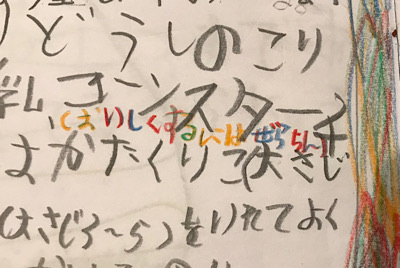 どうしのこり
コーンスターチ
(おいしくするにはぜらちん)
かたくりこ(大さじ
(大さじ3〜5)をいれてよく